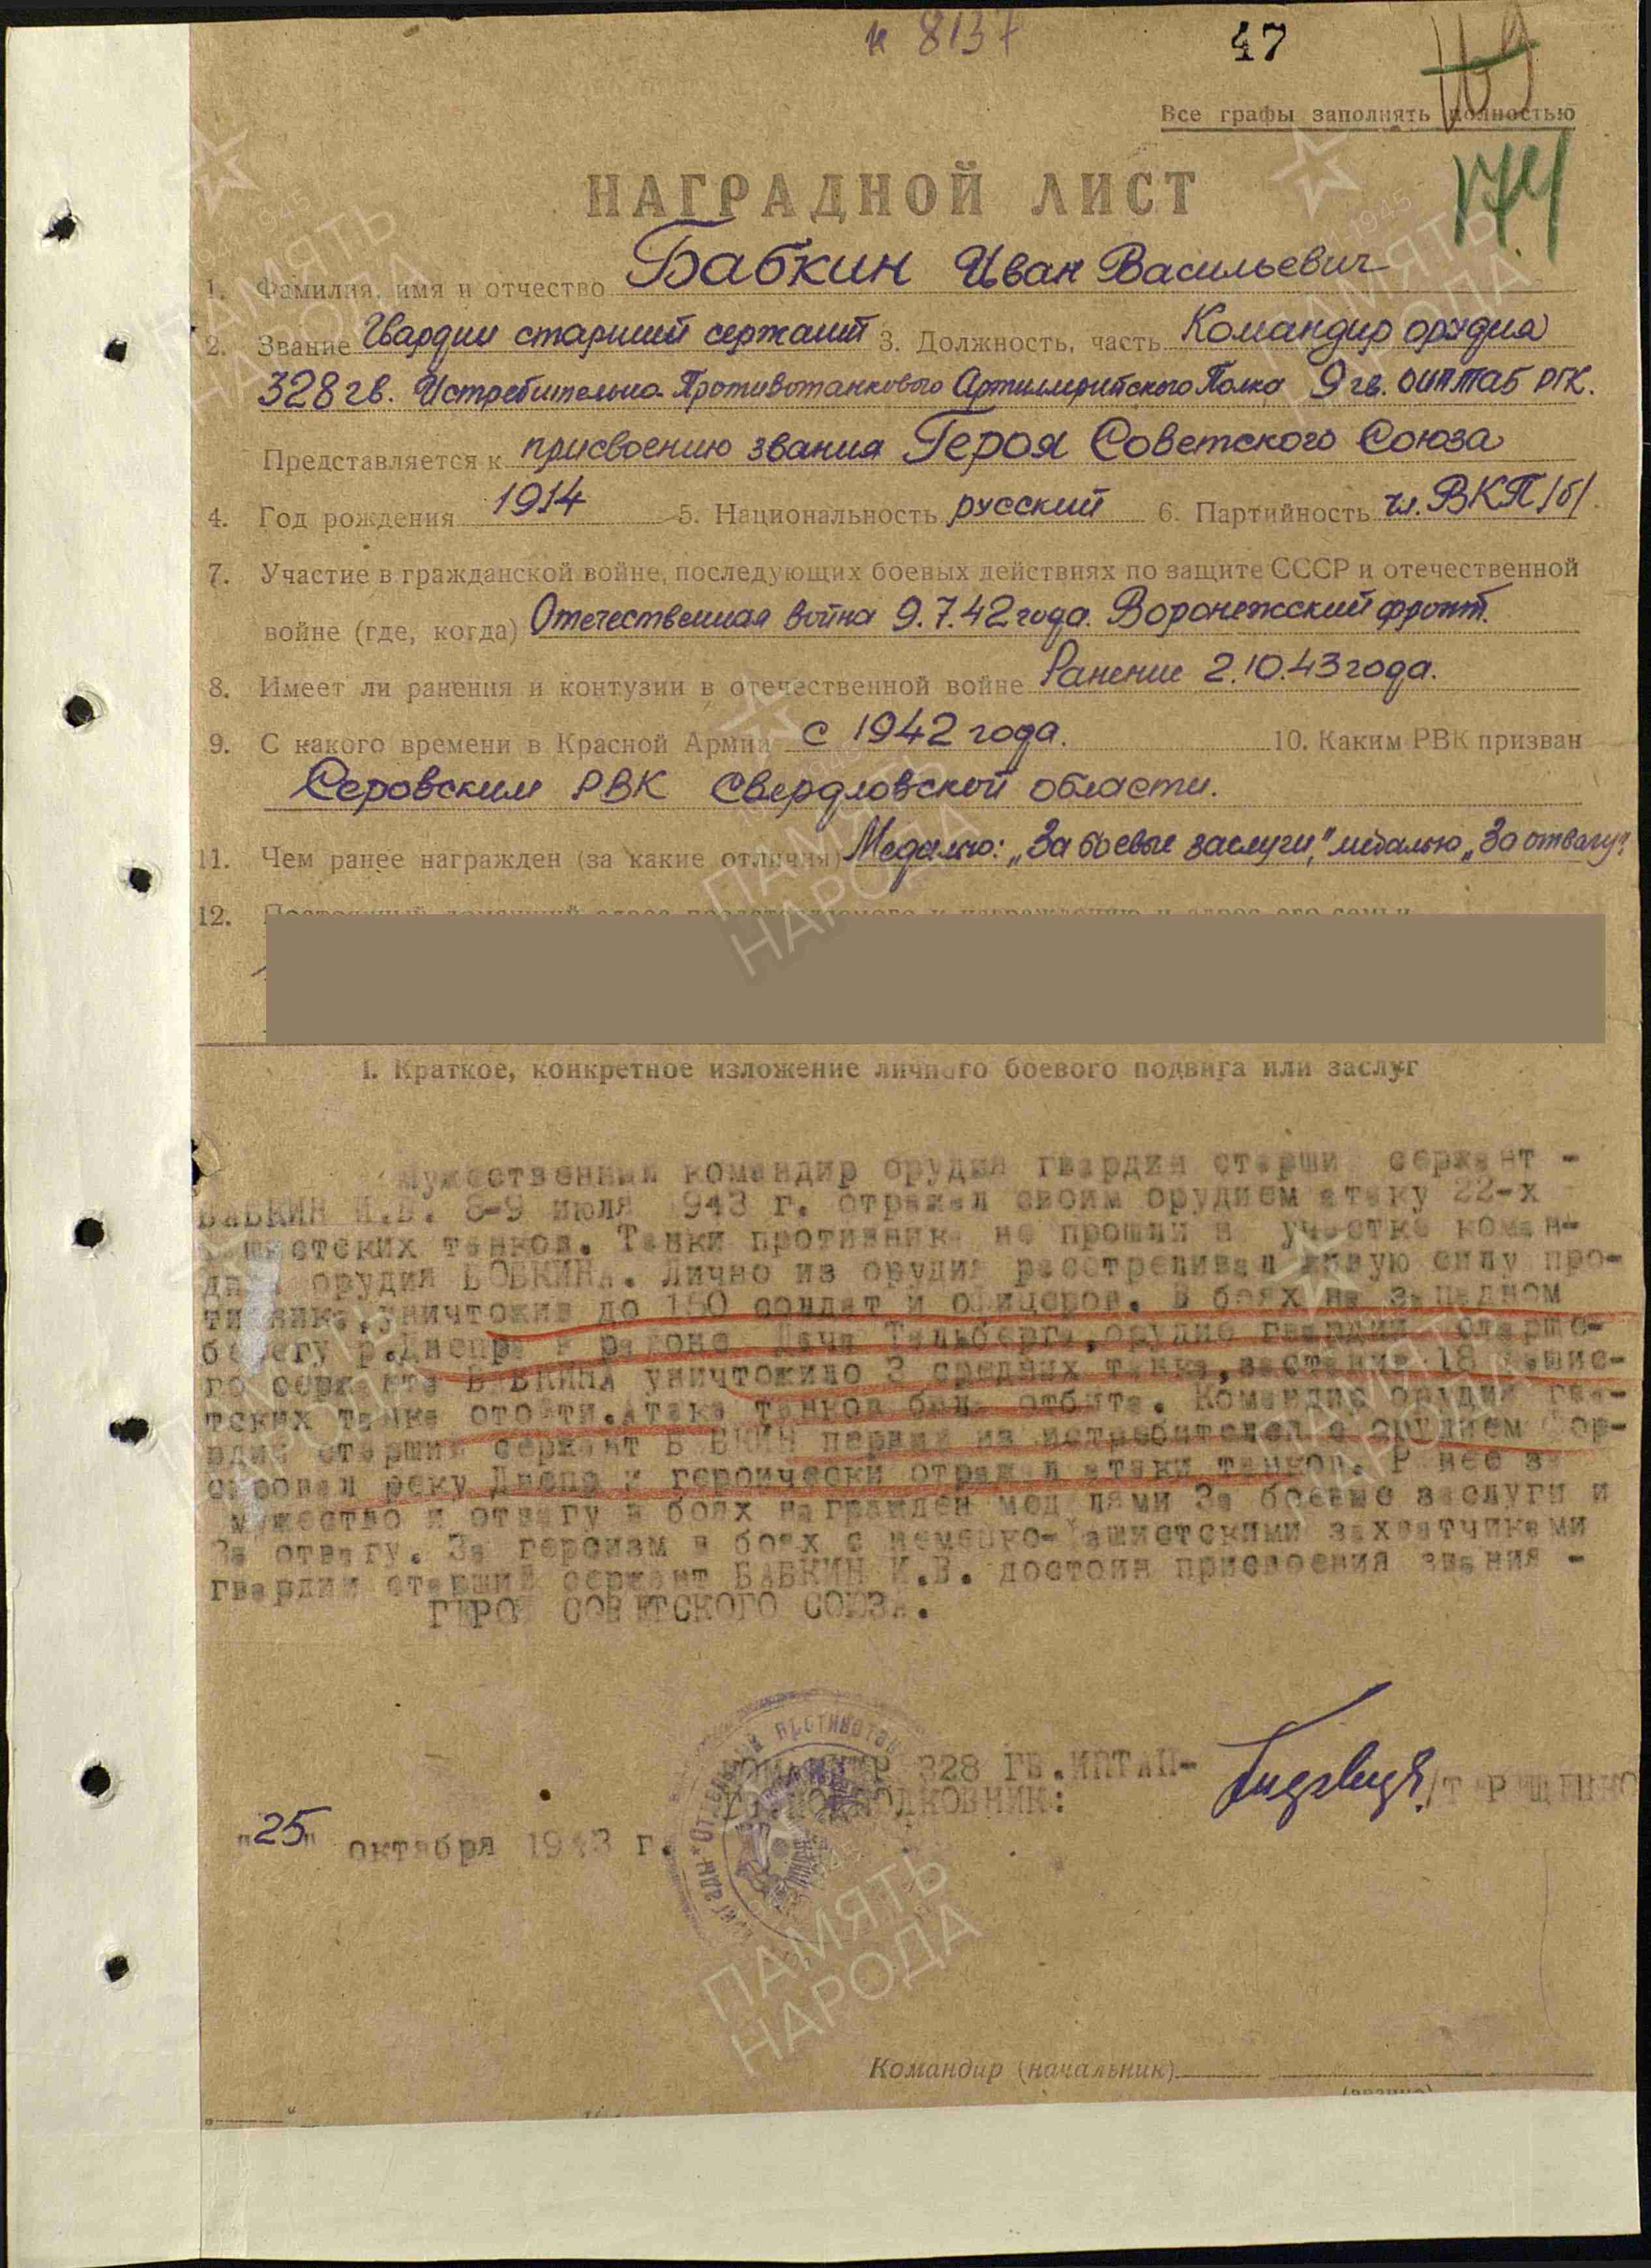 н 8137
47
169
174
Все графы заполнять полностью
НАГРАДНОЙ ЛИСТ
1. Фамилия, имя и отчество Бабкин Иван Васильевич
2. Звание Гвардии старший сержант 3. Должность, часть Командир орудия
328 гв. Истребительно-Противотанкового Артиллерийского Полка 9 гв. ОИПТАБ РГК.
Представляется к присвоению звания Героя Советского Союза
4. Год рождения 1914 5. Национальность русский 6. Партийность чл. ВКП/б/.
7. Участие в гражданской войне, последующих боевых действиях по защите СССР и отечественной
войне (где, когда) Отечественная война 9.7.42 года. Воронежский фронт.
8. Имеет ли ранения и контузии в отечественной войне Ранение 2.10.43 года.
9. С какого времени в Красной Армии с 1942 года. 10. Каким РВК призван
Серовским РВК Свердловской области.
11. Чем ранее награжден (за какие отличия) Медалью: „За боевые заслуги", медалью „За отвагу".
12. Постоянный домашний адрес представляемого к награждению и адрес его семьи
I. Краткое, конкретное изложение личного боевого подвига или заслуг
Мужественный командир орудия гвардии старший сержант -
БАБКИН И.В. 8-9 июля 1943 г. отражал своим орудием атаку 22-х
фашистских танков. Танки противника не прошли на участке коман-
дира орудия БОБКИНА. Лично из орудия расстреливал живую силу про-
тивника, уничтожив до 150 солдат и офицеров. В боях на западном
берегу р.Днепра в районе Дача Тальберга, орудие гвардии старше-
го сержанта БАБКИНА уничтожило 3 средних танка, заставив 18 фашис-
тских танка отойти. Атака танков была отбита. Командир орудия гва-
рдии старший сержант БАБКИН первый из истребителей с орудием фор-
сировал реку Днепр и героически отражал атаки танков. Ранее за
мужество и отвагу в боях награжден медалями За боевые заслуги и
За отвагу. За героизм в боях с немецко-фашистскими захватчиками
гвардии старший сержант БАБКИН И.В. достоин присвоения звания -
ГЕРОЯ СОВЕТСКОГО СОЮЗА.
КОМАНДИР 328 ГВ.ИПТАП-
ГВ.ПОДПОЛКОВНИК: /ТАРАЩЕНКО
"25" октября 1943 г.
Командир (начальник)
(звание)
ПАМЯТЬ
НАРОДА
1941-1945